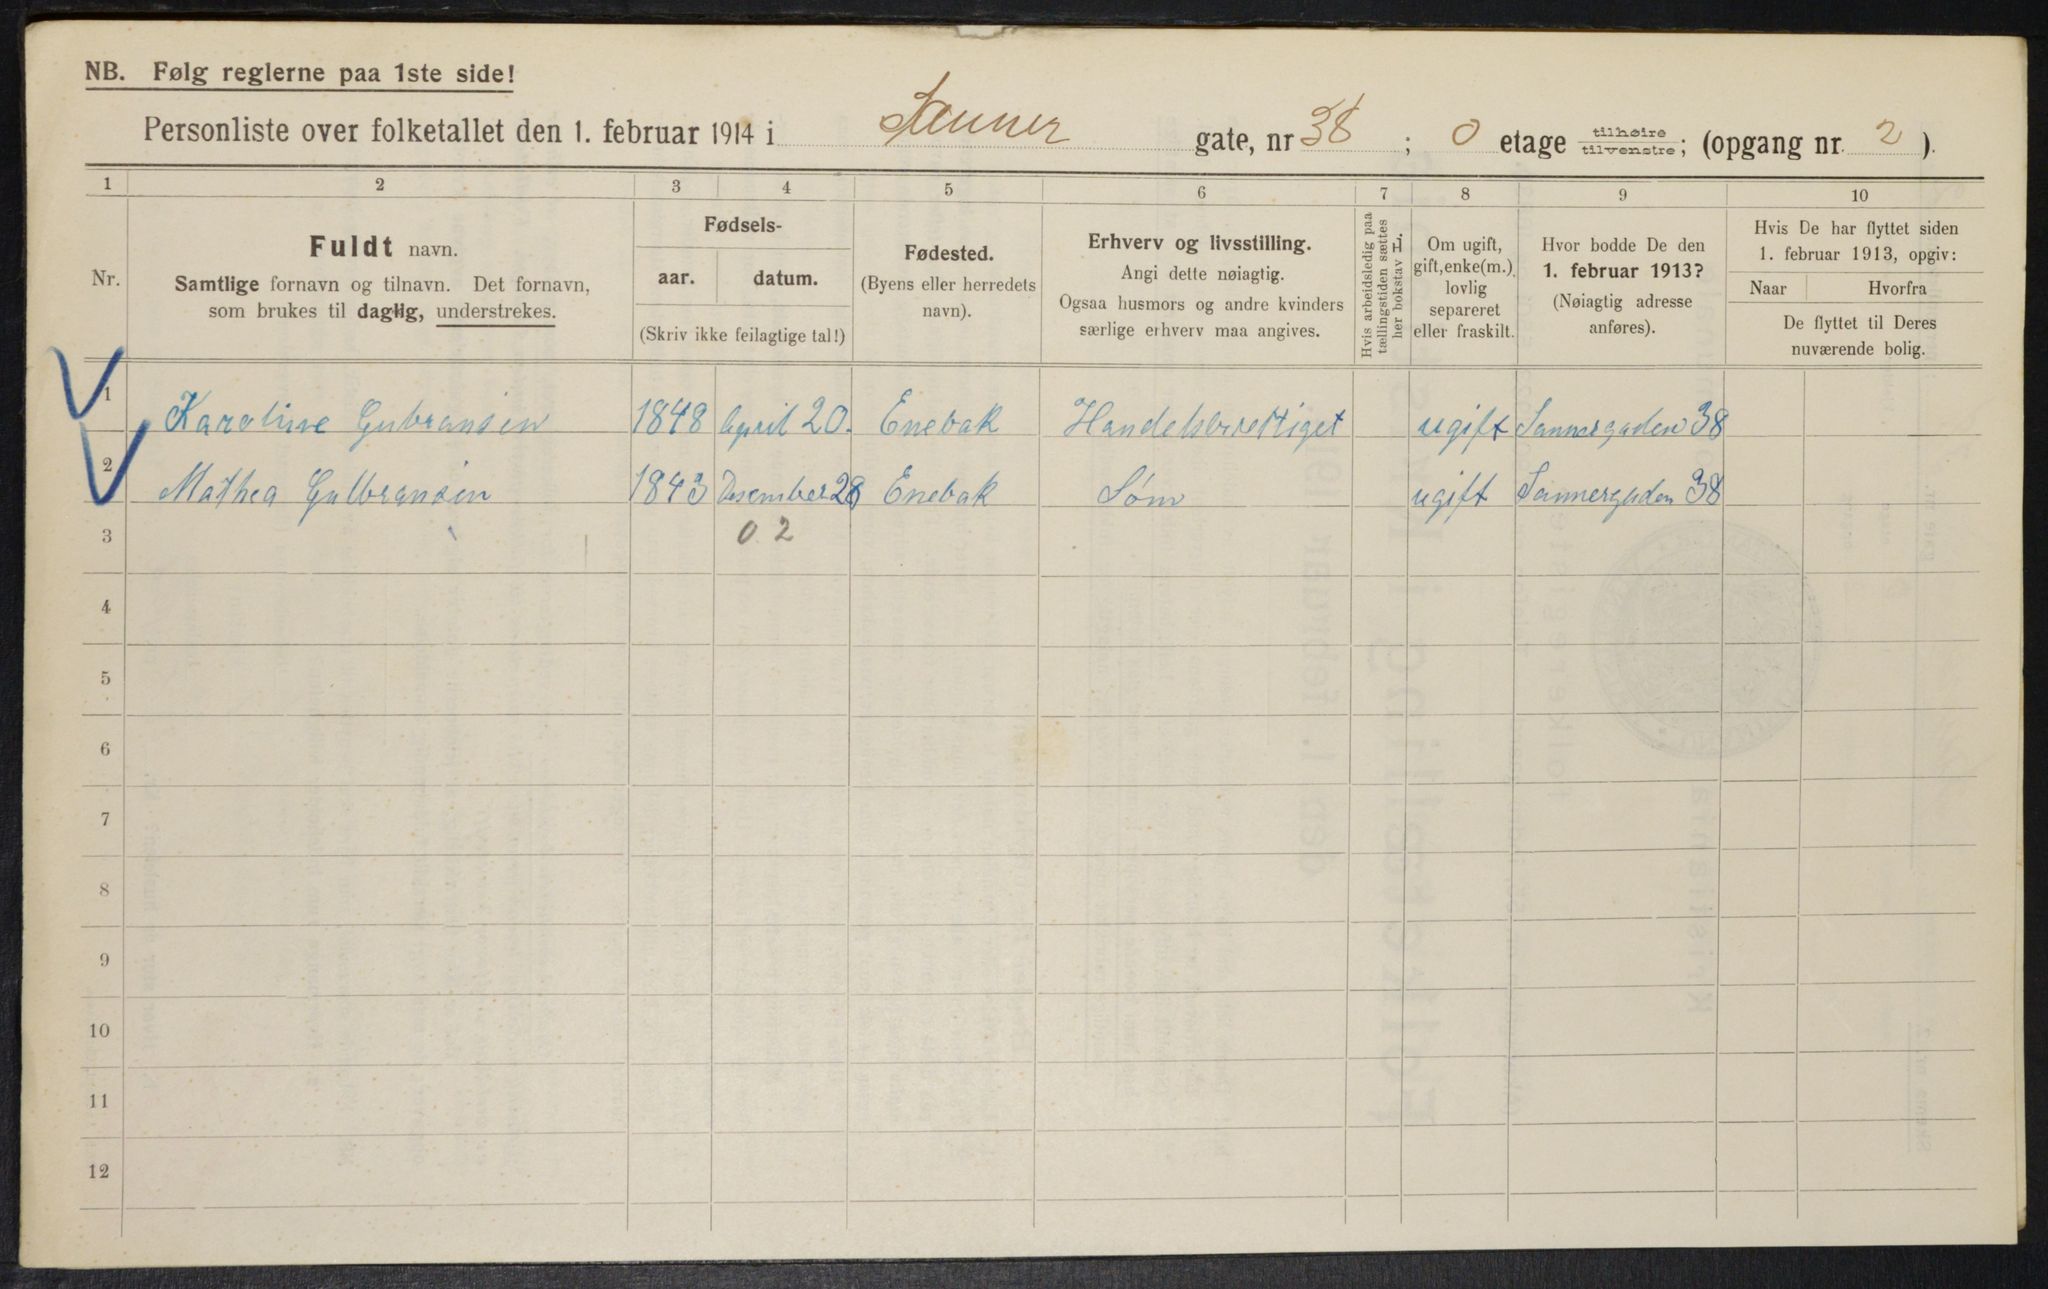 NB. Følg reglerne paa 1ste side!
Personliste over folketallet den 1. februar 1914 i Sanner gate, nr 38; 0 etage tilhøire/tilvenstre; (opgang nr. 2).
1 2 3 4 5 6 7 8 9 10
Nr.
Fuldt navn.
Samtlige fornavn og tilnavn. Det fornavn,
som brukes til daglig, understrekes.
Fødsels-
aar. datum.
(Skriv ikke feilagtige tal!)
Fødested.
(Byens eller herredets
navn).
Erhverv og livsstilling.
Angi dette nøiagtig.
Ogsaa husmors og andre kvinders
særlige erhverv maa angives.
Hvis arbeidsledig paa
tællingstiden sættes
her bokstav L.
Om ugift,
gift, enke(m.),
lovlig
separeret
eller fraskilt.
Hvor bodde De den
1. februar 1913?
(Nøiagtig adresse
anføres).
Hvis De har flyttet siden
1. februar 1913, opgiv:
Naar Hvorfra
De flyttet til Deres
nuværende bolig.
1 Karoline Gubransen 1848 April 20. Enebak Handelsberettiget ugift Sannergaden 38
2 Mathea Gulbransen 1843 Desember 28 Enebak Søm ugift Sannergaden 38
3 0 2
4
5
6
7
8
9
10
11
12